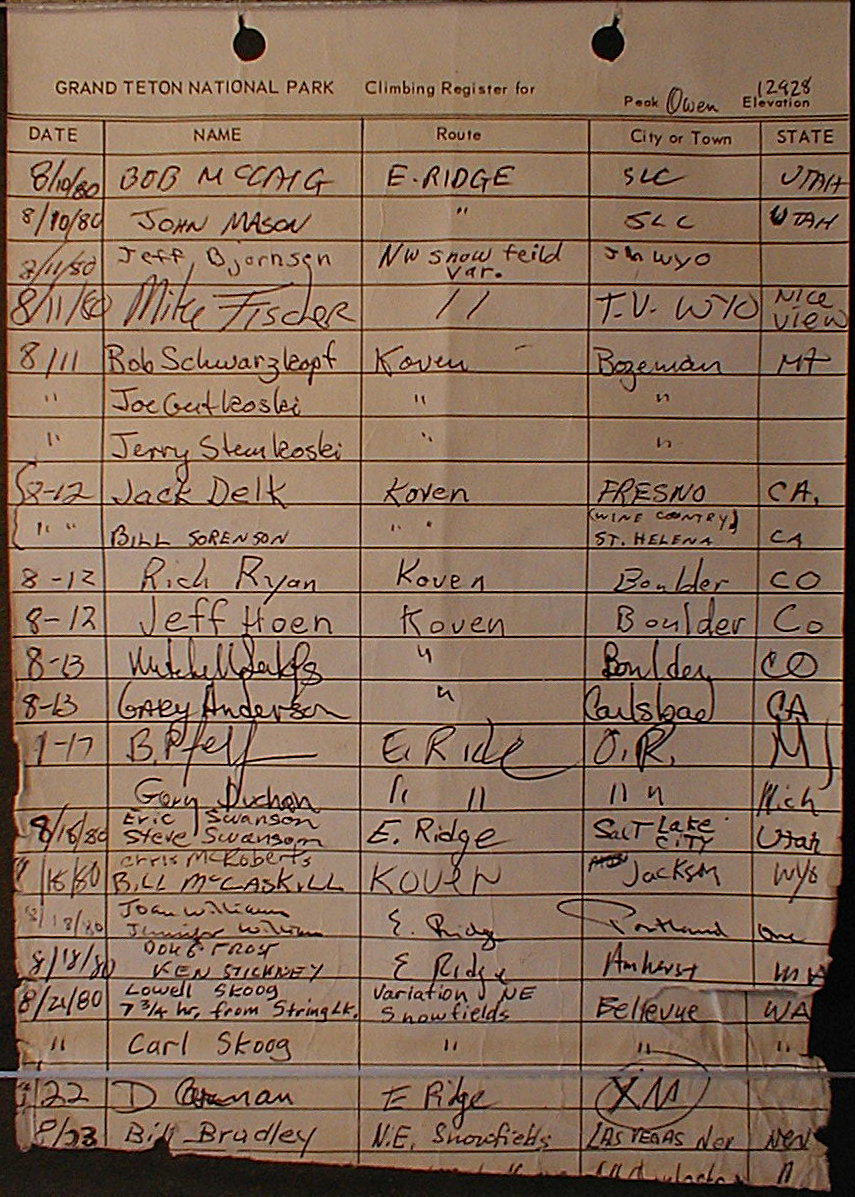 GRAND TETON NATIONAL PARK Climbing Register for Peak Owen 12928 Elevation
DATE NAME Route City or Town STATE
8/10/80 BOB McCAIG E. RIDGE SLC UTAH
8/10/80 JOHN MASON " SLC UTAH
8/11/80 Jeff Bjornsen NW snow feild var. WYO
8/11/80 Mike Fischer // T.V. WYO Nice view
8/11 Bob Schwarzkopf Koven Bozeman MT
" Joe Gutkoski " "
" Jerry " "
8-12 Jack Delk Koven FRESNO CA.
" " BILL SORENSON " " (WINE COUNTRY) ST. HELENA CA
8-12 Rich Ryan Koven Boulder CO
8-12 Jeff Hoen Koven Boulder Co
8-13 Mitchell " Boulder CO
8-13 GARY Anderson " Carlsbad CA
1-17 B. E. Ride O.R. MI
Gary " " " " Mich
8/18/80 Eric Swanson
Steve Swanson E. Ridge Salt Lake City Utah
/18/80 Chris McRoberts
BILL McCASKILL KOVEN Jackson WYO
8/18/80 Joan Williams
Jennifer William E. Ridge Portland Ore
8/18/80 DOUG FROST
KEN STICKNEY E Ridge Amherst MA
8/21/80 Lowell Skoog Variation NE
7 3/4 hr. from String Lk. Snowfields Bellevue WA
" Carl Skoog " " "
/22 D E Ridge XM
8/23 Bill Bradley N.E. Snowfields LAS VEGAS Nev Nev